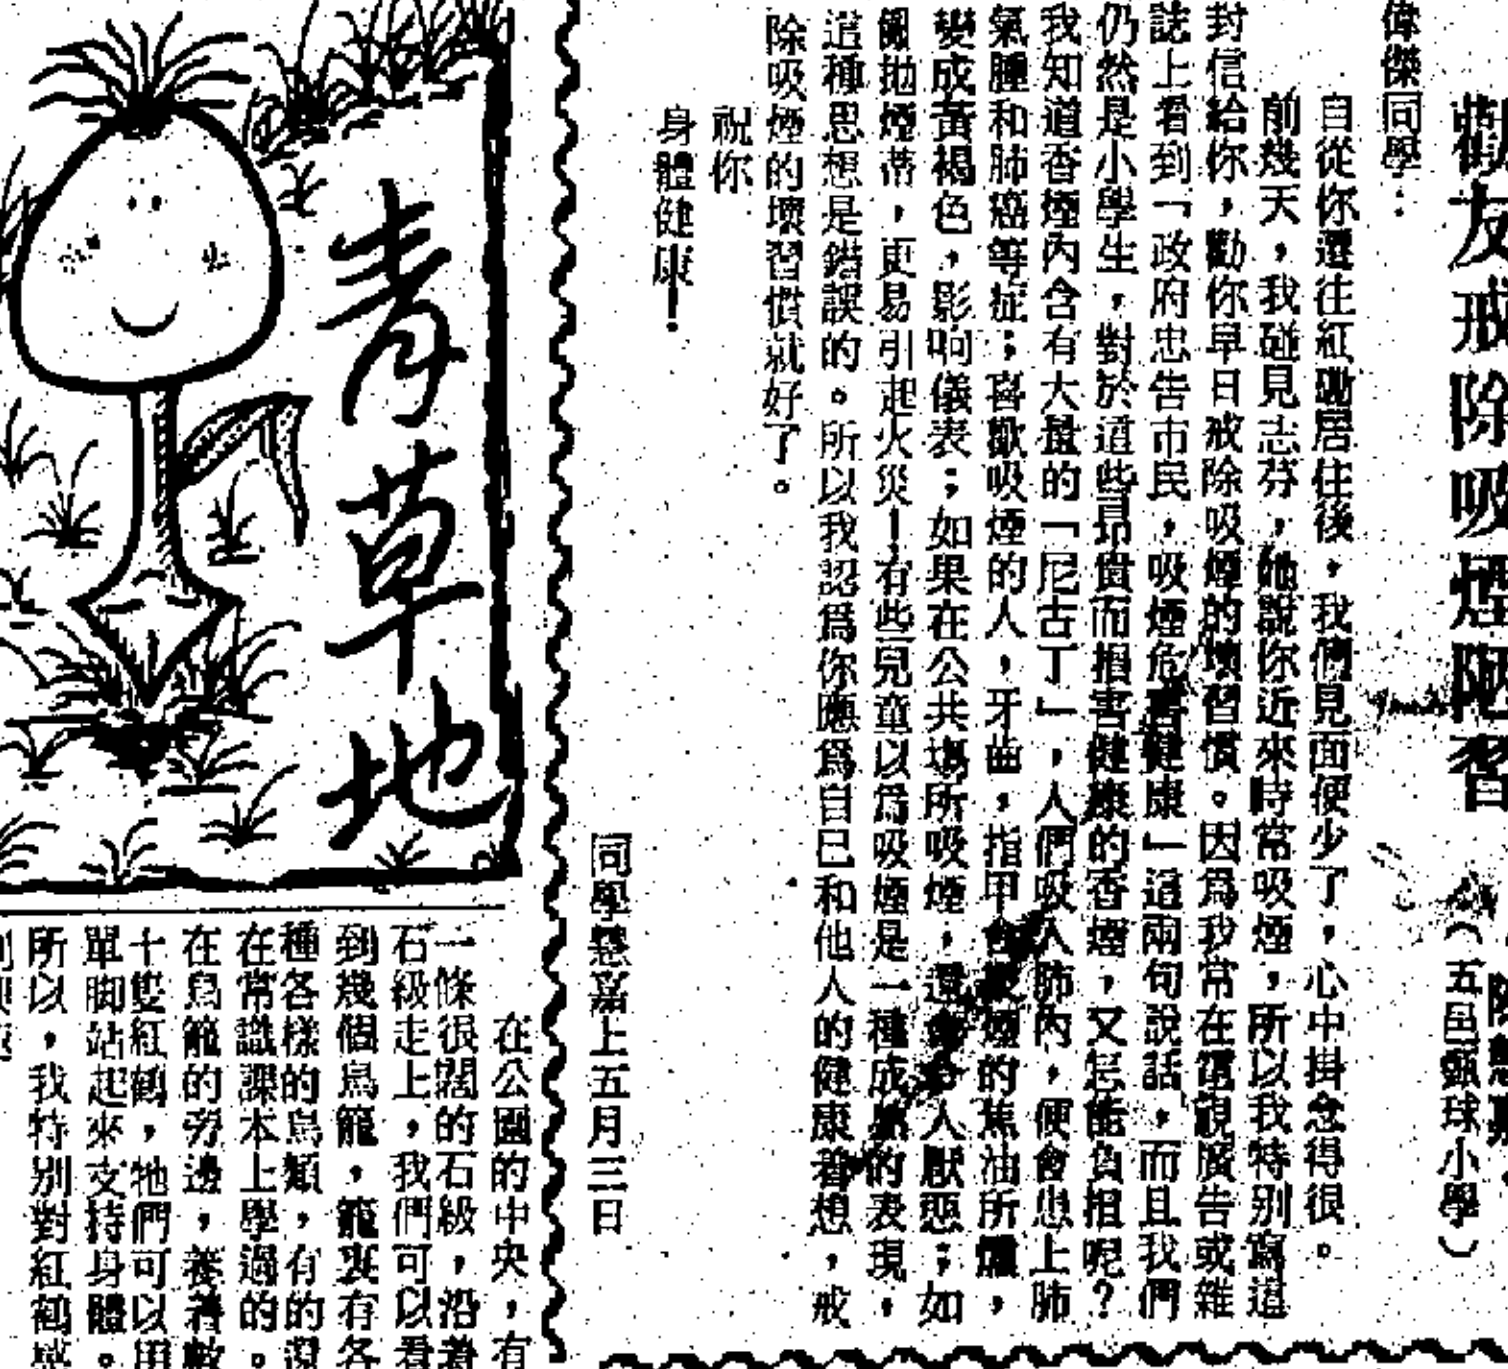 勸友戒除吸煙陋習
(五邑甄球小學)
偉傑同學：
自從你遷往紅磡居住後，我們見面便少了，心中掛念得很。
前幾天，我碰見志芬，她說你近來時常吸煙，所以我特別寫這
封信給你，勸你早日戒除吸煙的壞習慣。因為我常在電視廣告或雜
誌上看到「政府忠告市民，吸煙危害健康」這兩句說話，而且我們
仍然是小學生，對於這些昂貴而損害健康的香煙，又怎能負担呢？
我知道香煙內含有大量的「尼古丁」，人們吸入肺內，便會患上肺
氣腫和肺癌等症；喜歡吸煙的人，牙齒，指甲會被煙的焦油所燻，
變成黃褐色，影响儀表；如果在公共場所吸煙，還會令人厭惡；如
亂拋煙蒂，更易引起火災！有些兒童以為吸煙是一種成熟的表現，
這種思想是錯誤的。所以我認為你應為自己和他人的健康着想，戒
除吸煙的壞習慣就好了。
祝你
身體健康！
同學慧嘉上五月三日
青草地
在公園的中央，有
一條很闊的石級，沿着
石級走上，我們可以看
到幾個鳥籠，籠裏有各
種各樣的鳥類，有的還
在常識課本上學過的。
在鳥籠的旁邊，養着數
十雙紅鶴，牠們可以用
單脚站起來支持身體。
所以，我特别對紅鶴感